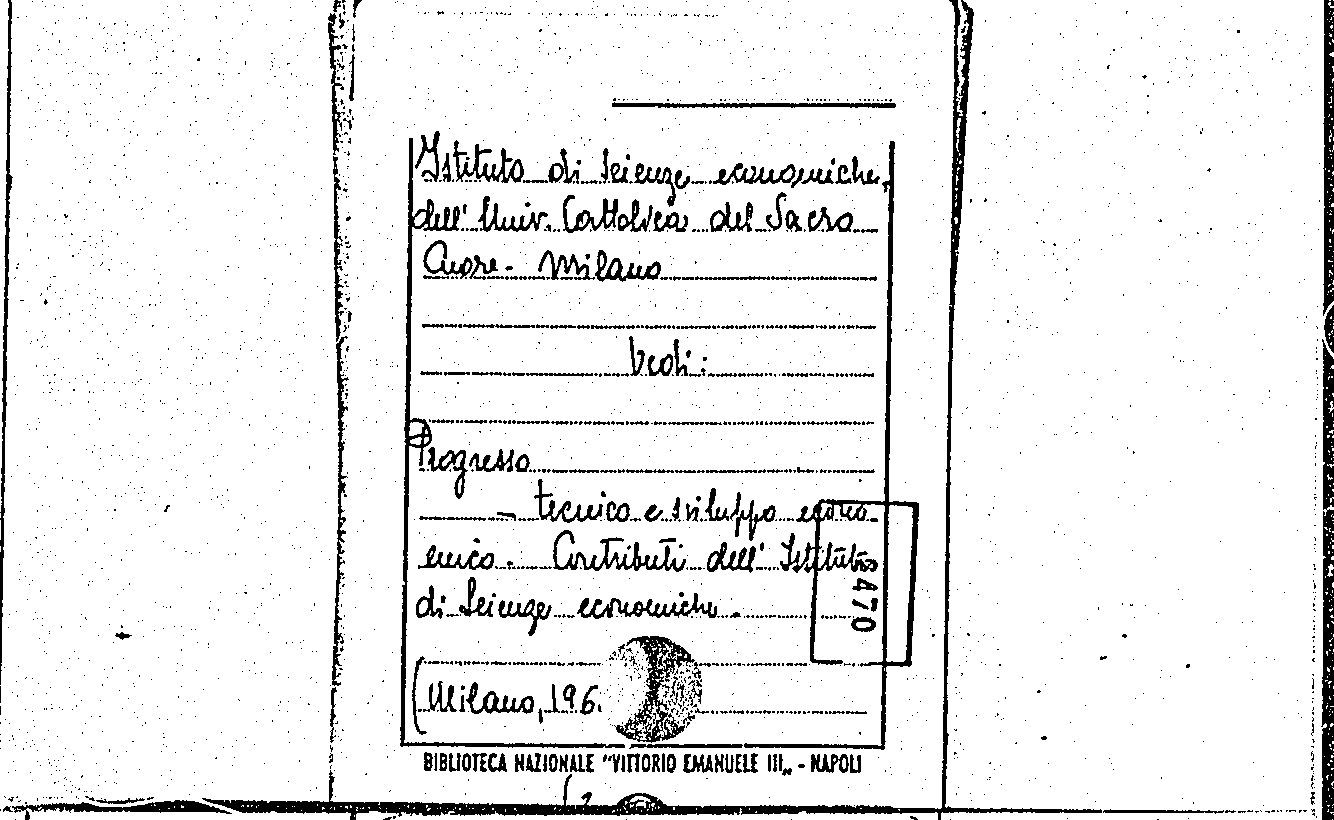 Istituto di Scienze economiche
dell' Univ. Cattolica del Sacro
Cuore - Milano
Vedi:
Progresso
— tecnico e sviluppo econo-
mico. Contributi dell' Istituto
di Scienze economiche.
(Milano, 196.
6470
BIBLIOTECA NAZIONALE "VITTORIO EMANUELE III„ - NAPOLI